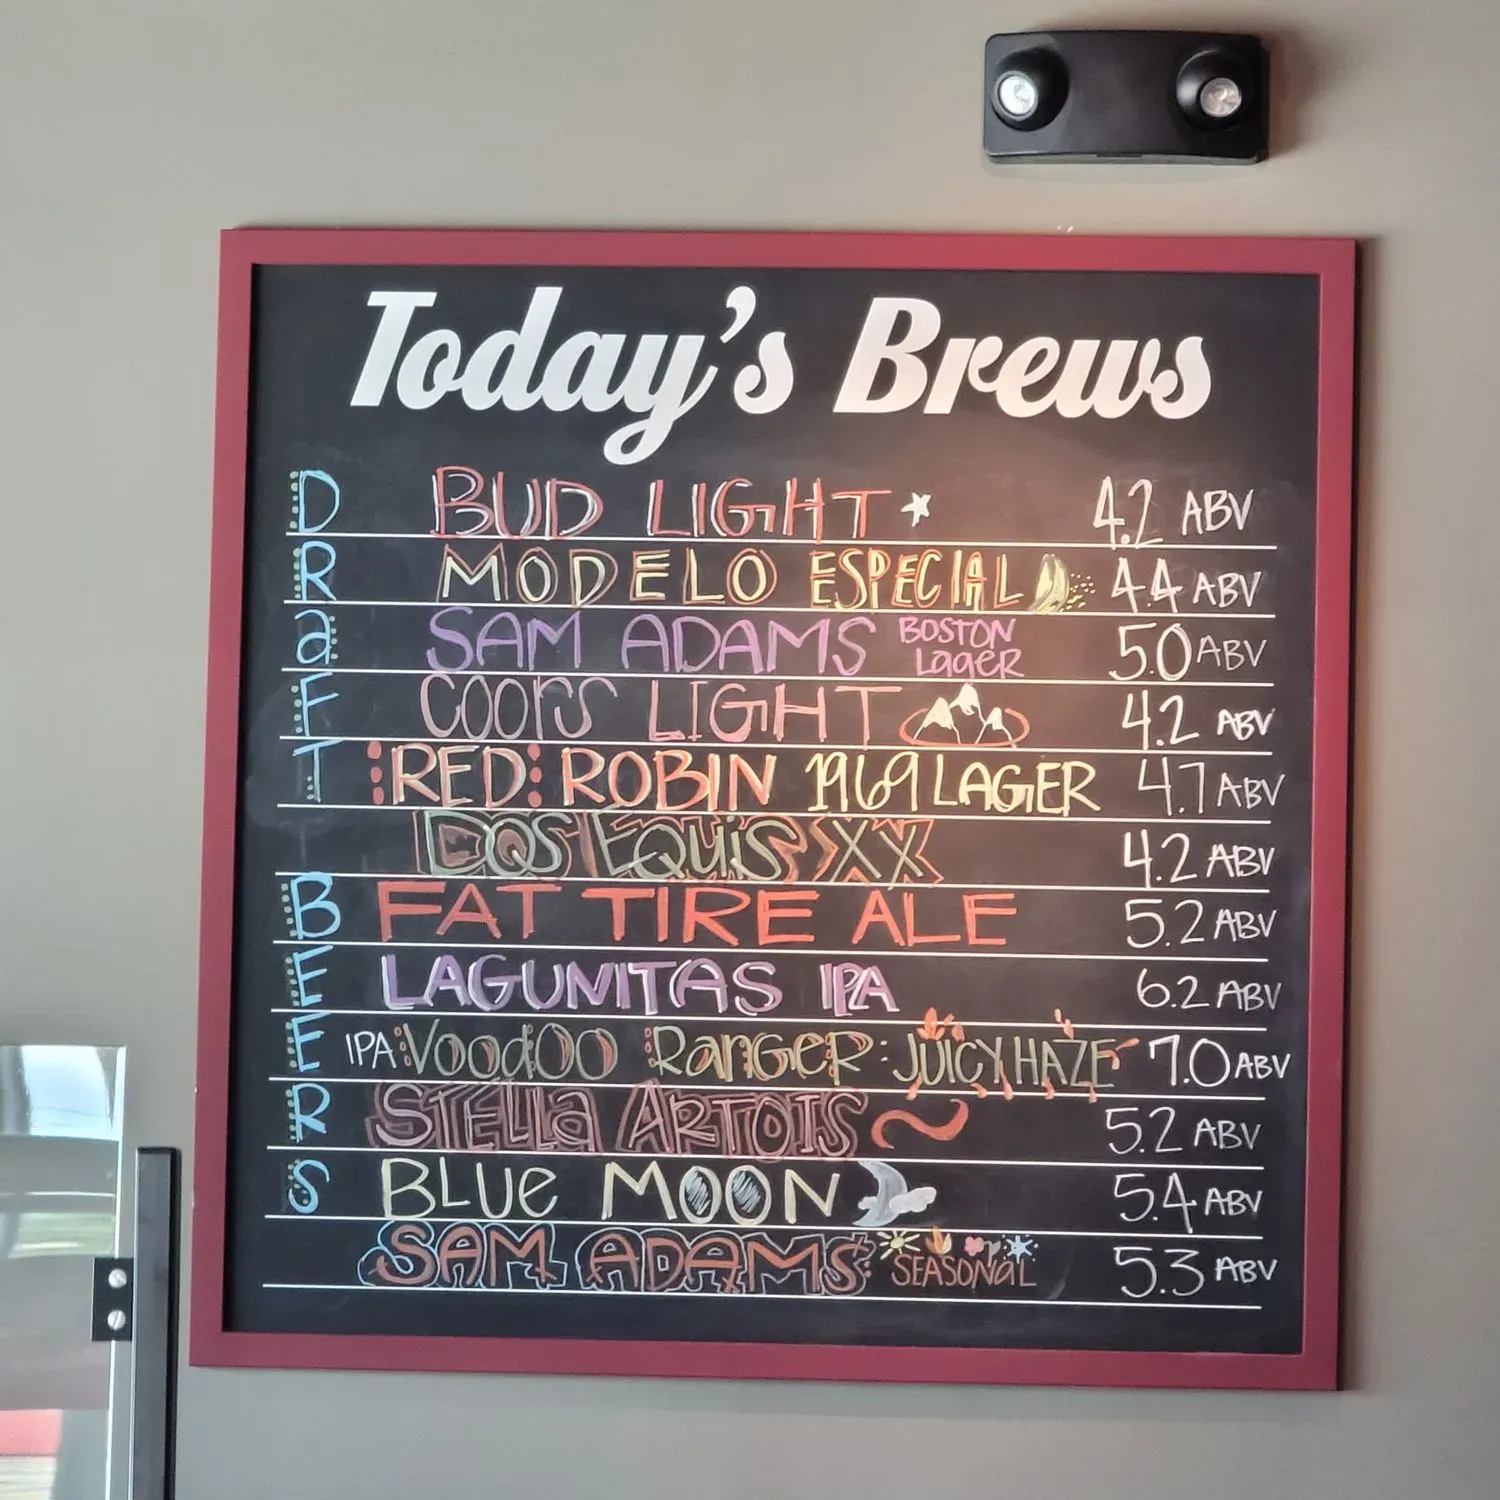 Today's Brews
DRaFT BEERS
BUD LIGHT 4.2 ABV
MODELO ESPECIAL 4.4 ABV
SAM ADAMS BOSTON LageR 5.0 ABV
COORS LIGHT 4.2 ABV
RED ROBIN 1969 LAGER 4.7 ABV
DOS EQUiS XX 4.2 ABV
FAT TIRE ALE 5.2 ABV
LAGUNITAS IPA 6.2 ABV
IPA: VoodOO RanGeR: JUICY HAZE 7.0 ABV
STELLa ARTOIS 5.2 ABV
BLUe MOON 5.4 ABV
SAM ADAMS: SEASONaL 5.3 ABV